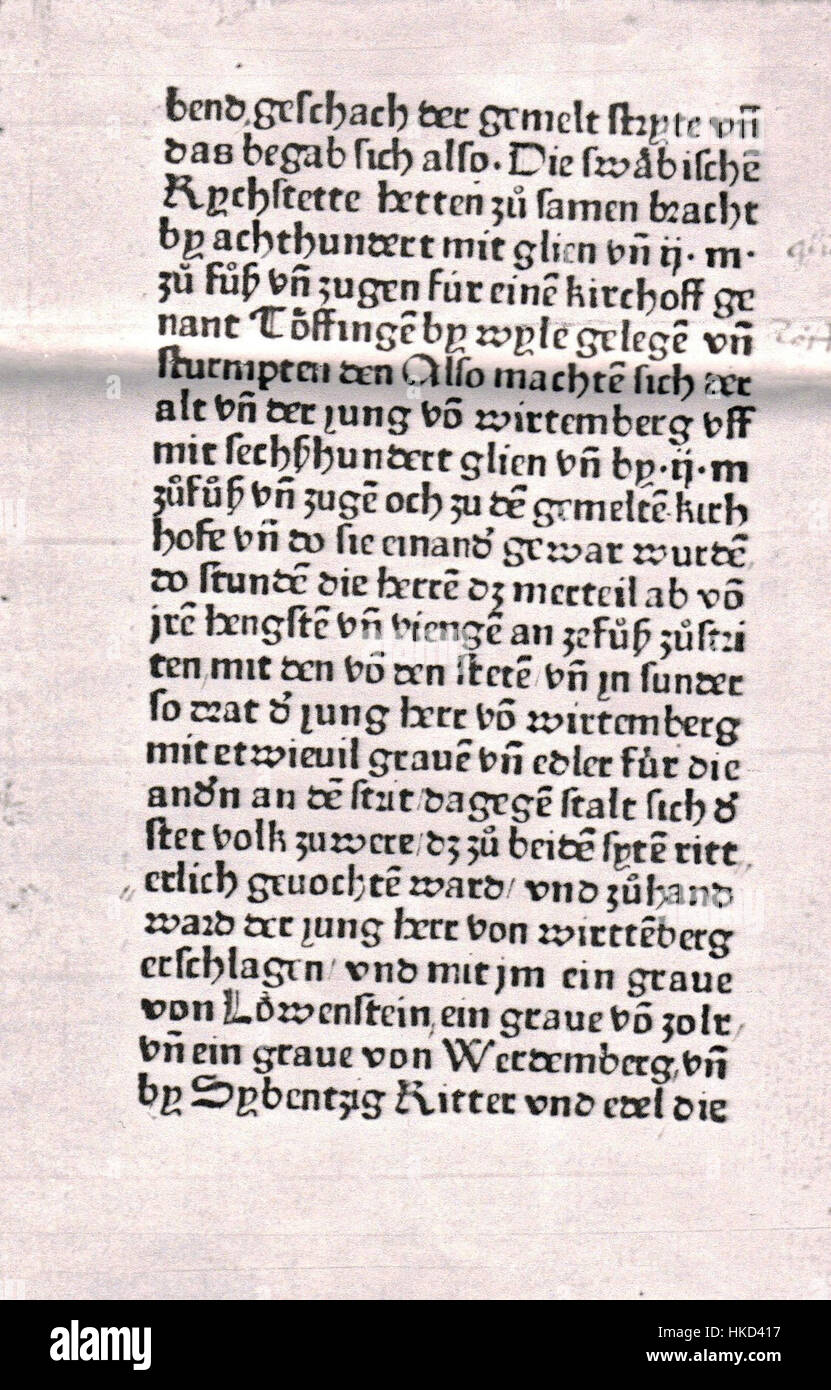 bend geschach der gemelt stryte vn̄
das begab sich also. Die swåbischē
Rychstette hetten zů samen bracht
by achthundert mit glien vn̄ ij. m.
zů fůß vn̄ zugen fúr einē kirchoff ge
nant Tôffingē by wyle gelegē vn̄
sturmpten den Also machtē sich der
alt vn̄ der jung vō wirtemberg vff
mit sechßhundert glien vn̄ by.ij.m
zůfůß vn̄ zugē och zu dē gemeltē kirh
hofe vn̄ do sie einand' gewar wurdē
do stundē die herrē dz merteil ab vō
jrē hengstē vn̄ viengē an zefůß zůstri
ten, mit den vō den stetē/ vn̄ jn sunder
so trat d' jung herr vō wirtemberg
mit etwieuil grauē vn̄ edler fúr die
and'n an dē strit/dagegē stalt sich d'
stet volk zuwere/dz zů beidē sytē ritt
erlich geuochtē ward/ vnd zůhand
ward der jung herr von wirttēberg
erschlagen/ vnd mit jm ein graue
von Lôwenstein, ein graue vō zolr/
vn̄ ein graue von Werdemberg, vn̄
by Sybentzig Ritter vnd edel die
alamy
Image ID: HKD417
www.alamy.com